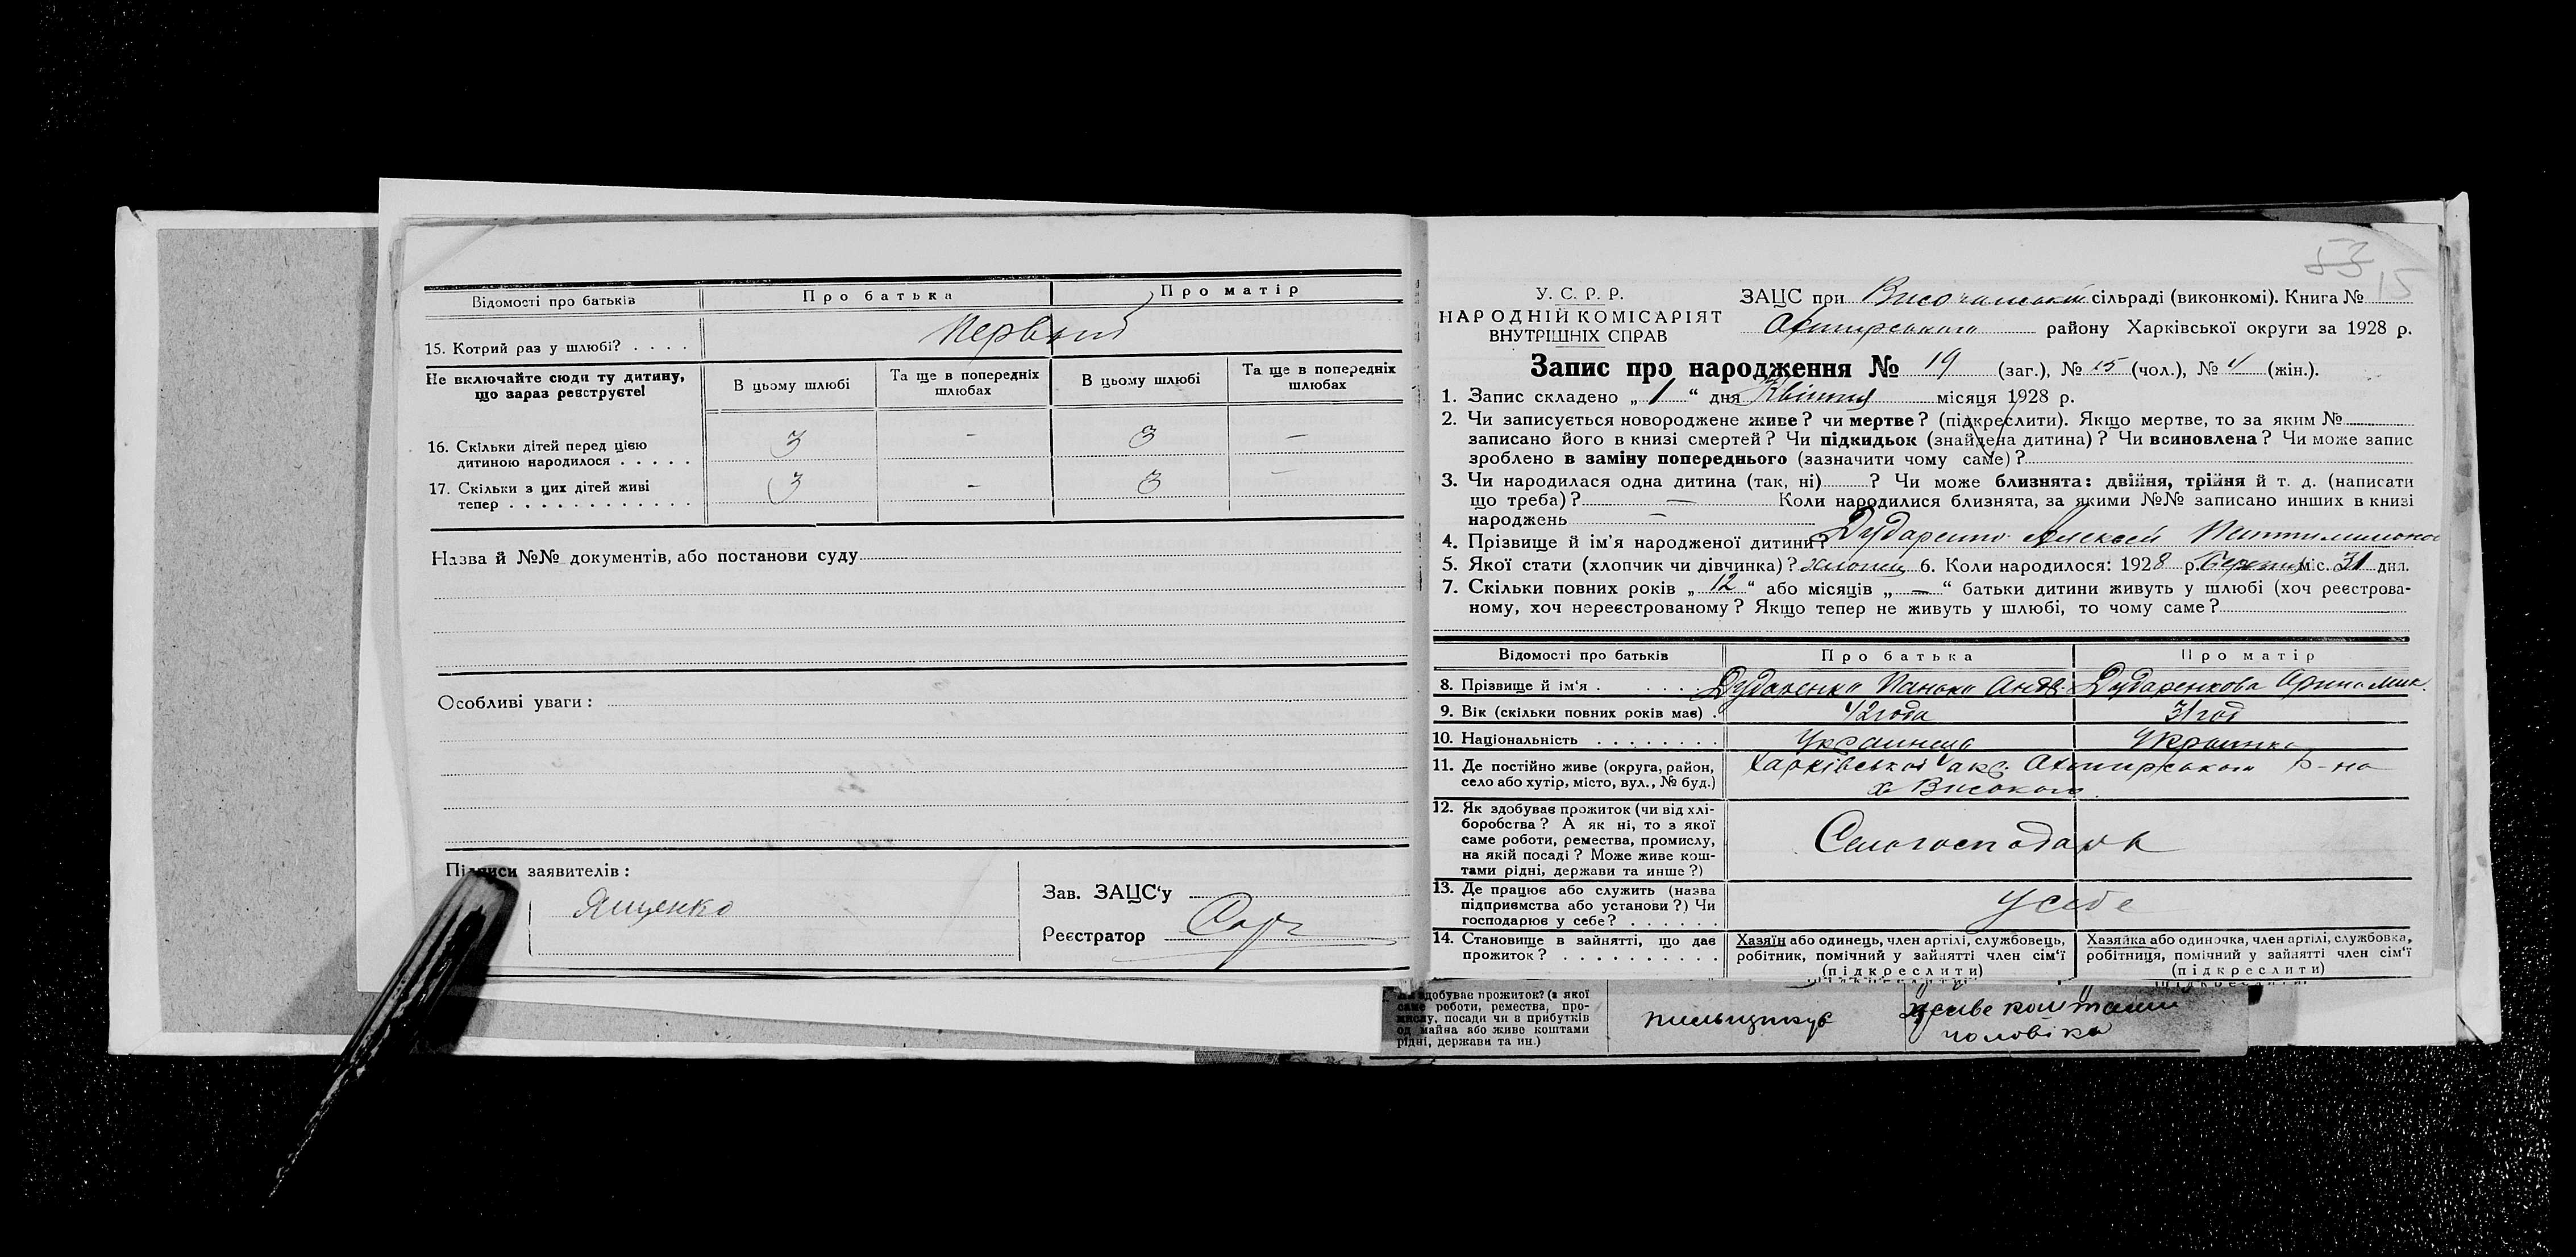 Відомості про батьків
Про батька
Про матір
15. Котрий раз у шлюбі? . . . .
Первый
Не включайте сюди ту дитину,
що зараз реєструєте!
В цьому шлюбі
Та ще в попередніх
шлюбах
В цьому шлюбі
Та ще в попередніх
шлюбах
16. Скільки дітей перед цією
дитиною народилося . . . . .
3 - 3 -
17. Скільки з цих дітей живі
тепер . . . . . . . . . . . .
3 - 3 -
Назва й №№ документів, або постанови суду
Особливі уваги :
Підписи заявителів :
Ященко
Зав. ЗАЦС'у
Реєстратор
53
15
У. С. Р. Р.
НАРОДНІЙ КОМІСАРІЯТ
ВНУТРІШНІХ СПРАВ
ЗАЦС при Височанській сільраді (виконкомі). Книга №
району Харківської округи за 1928 р.
Запис про народження № 19 (заг.), № 15 (чол.), № 4 (жін.).
1. Запис складено „ 1 “ дня Квітня місяця 1928 р.
2. Чи записується новороджене живе? чи мертве? (підкреслити). Якщо мертве, то за яким №
записано його в книзі смертей? Чи підкидьок (знайдена дитина)? Чи всиновлена? Чи може запис
зроблено в заміну попереднього (зазначити чому саме)?
3. Чи народилася одна дитина (так, ні) ? Чи може близнята: двійня, трійня й т. д. (написати
що треба)? — Коли народилися близнята, за якими №№ записано инших в книзі
народжень —
4. Прізвище й ім'я народженої дитини? Дударенко Алексей
5. Якої стати (хлопчик чи дівчинка)? хлопец 6. Коли народилося: 1928 р. Березня міс. 31 дня.
7. Скільки повних років „ 12 “ або місяців „ — “ батьки дитини живуть у шлюбі (хоч реєстрова-
ному, хоч нереєстрованому? Якщо тепер не живуть у шлюбі, то чому саме?
Відомості про батьків
Про батька
Про матір
8. Прізвище й ім'я . . . . .
Дударенко Панько Анд.
Дударенкова Арина Мик.
9. Вік (скільки повних років має) .
42 года
31 год
10. Національність . . . . . . . .
Украинец
Украинка
11. Де постійно живе (округа, район,
село або хутір, місто, вул., № буд.)
Харківської окр. р-на
х Високого
12. Як здобуває прожиток (чи від хлі-
боробства? А як ні, то з якої
саме роботи, ремества, промислу,
на якій посаді? Може живе кош-
тами рідні, держави та инше?)
13. Де працює або служить (назва
підприємства або установи?) Чи
господарює у себе? . . . . . .
У себе
14. Становище в зайнятті, що дає
прожиток? . . . . . . . . . .
Хазяїн або одинець, член артілі, службовець,
робітник, помічний у зайнятті член сім'ї
(підкреслити)
Хазяйка або одиночка, член артілі, службовка,
робітниця, помічний у зайнятті член сім'ї
(підкреслити)
здобуває прожиток? (з якої
саме роботи, ремества, про-
мислу, посади чи з прибутків
од майна або живе коштами
рідні, держави та ин.)
живе коштами
чоловіка